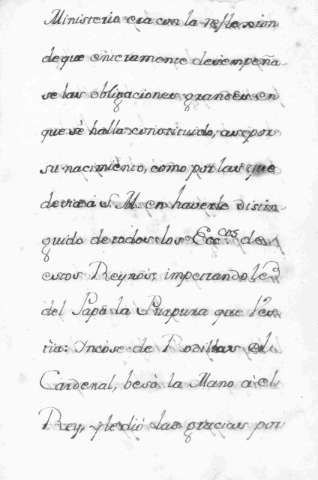 Ministerio era con la reflexion
de que unicamente desempeña
se las obligaciones grandes en
que sé halla constituido, asi por
su nacimiento, como por las que
devia à S. M. en haverle distin
guido de todos los Ecc.cos de
estos Reynos, impetrando le
del Papa la Purpura que
ria: Incóse de Rodillas el
Cardenal, besó la Mano à el
Rey, y le dió las gracias por